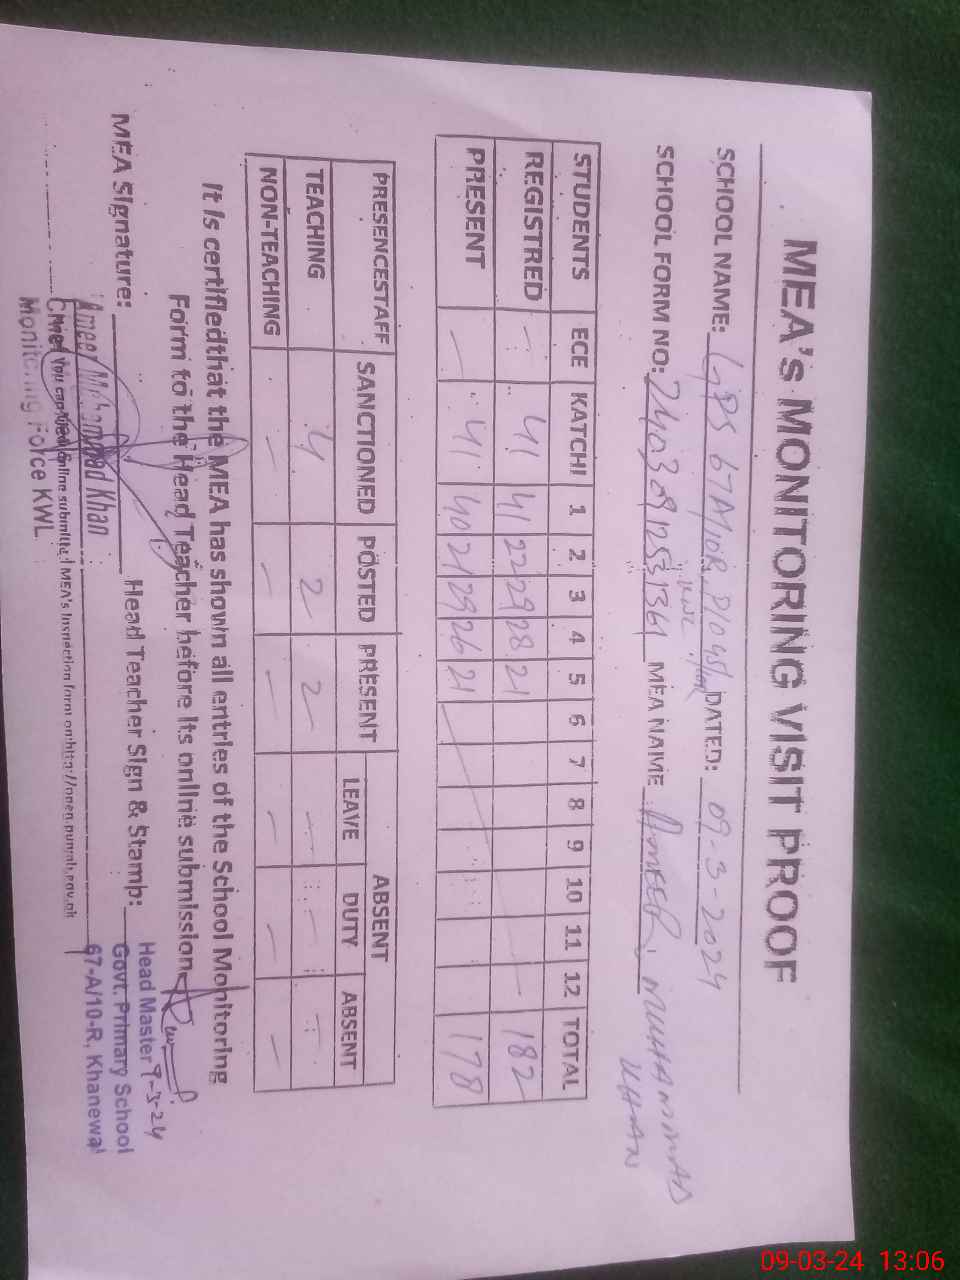 MEA's MONITORING VISIT PROOF
SCHOOL NAME: GPS 67A/10R DATED: 09-3-2024
SCHOOL FORM NO: MEA NAME AMEER MUHAMMAD
KHAN
STUDENTS ECE KATCHI 1 2 3 4 5 6 7 8 9 10 11 12 TOTAL
REGISTRED - 41 41 22 29 28 21 182
PRESENT - 41 40 21 29 26 21 178
PRESENCESTAFF SANCTIONED POSTED PRESENT ABSENT
LEAVE DUTY ABSENT
TEACHING 4 2 2 - - -
NON-TEACHING - - - - - -
It is certifiedthat the MEA has shown all entries of the School Monitoring
Form to the Head Teacher before its online submission
MEA Signature: Head Teacher Sign & Stamp:
Head Master 9-3-24
Govt. Primary School
67-A/10-R. Khanewal
Ameer Mohammad Khan
Monitering Force KWL
You can view online submitted MEA's Inspection form on:http://open.punjab.gov.pk
09-03-24 13:06